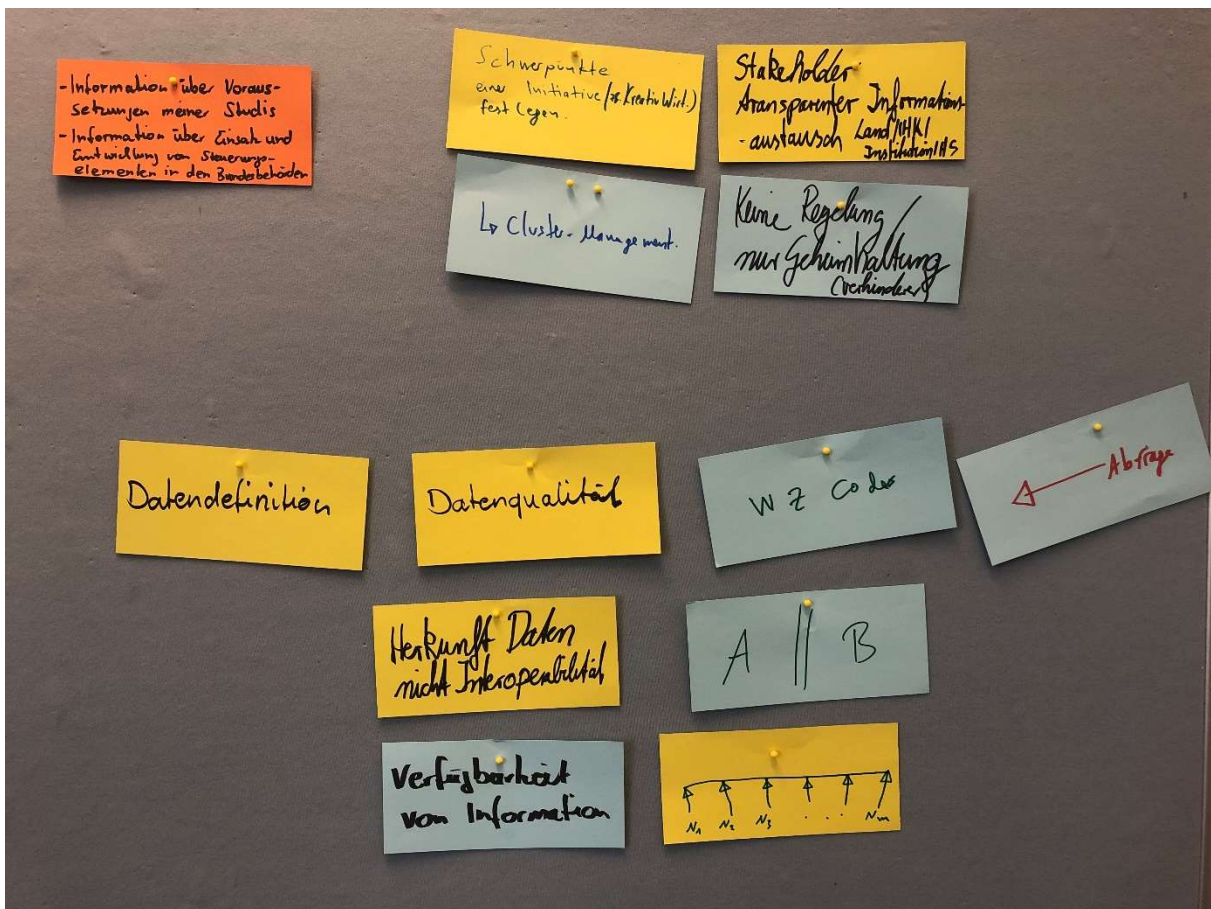 - Information über Voraus-
setzungen meiner Studis
- Information über Einsatz und
Entwicklung von Steuerungs-
elementen in den Bundesbehörden
Schwerpunkte
einer Initiative (zB KreativWirt.)
fest legen.
↳ Cluster-Management.
Stakeholder
transparenter Informations-
-austausch Land/IHK/
Institution/HS
Keine Regelung /
nur Geheimhaltung
(verhinderer)
Datendefinition
Datenqualität
WZ Codes
← Abfrage
Herkunft Daten
nicht Interoperabilität
A || B
Verfügbarkeit
von Information
N1 N2 N3 . . . Nm